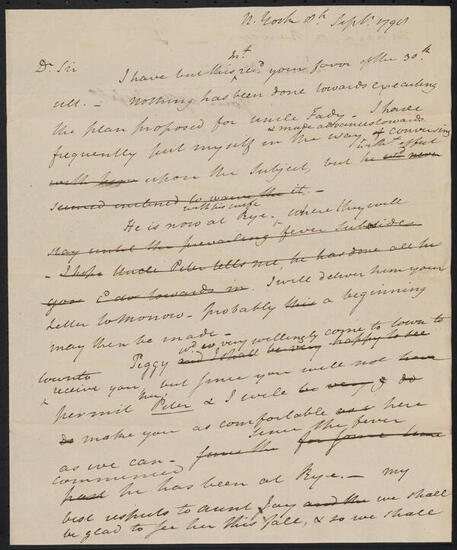 N. York 8th Septr. 1798
Dr Sir
I have but this mt. recd. your favor of the 30th
ult. - Nothing has been done towards executing
the plan proposed for uncle Fady. - I have
& made advances towards
frequently put myself in the way of conversing
with him upon the Subject, but he never
seemed inclined to wave the it. -
with his wife
He is now at Rye, where they will
stay until the prevailing fever subsides.
- I hope Uncle Peter tells me, he has done all he
can I will deliver him your
Letter tomorrow - probably this a beginning
may then be made. -
Peggy wd. very willingly come to town to
and I shall be very happy to see
receive you, but since you will not have
her,
permit Peter & I will be very & do
do make you as comfortable as here
as we can. - Since the fever
commenced for some time
past he has been at Rye. - My
best respects to aunt Jay and the we shall
be glad to see her this fall, & so we shall